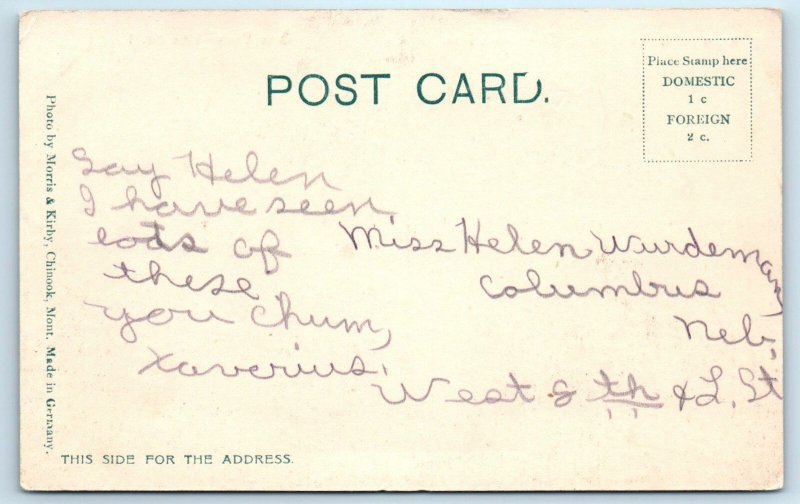 POST CARD.
Place Stamp here
DOMESTIC
1 c
FOREIGN
2 c.
Photo by Morris & Kirby, Chinook, Mont. Made in Germany.
Say Helen
I have seen
lots of
these
you chum,
Xaverius.
Miss Helen Wurdeman
Columbus
Neb.
West 8th & L. St
THIS SIDE FOR THE ADDRESS.